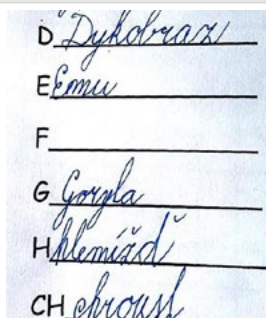 D Dykobraz
E Emu
F
G Goryla
H hlemížď
CH chroust